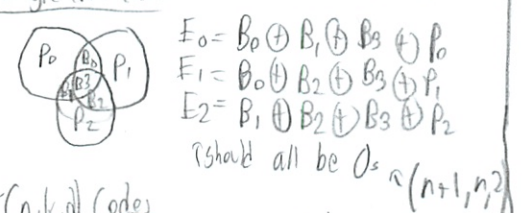 P₀ B₀ P₁
B₁ B3 B₂
P₂
E₀ = B₀ ⊕ B₁ ⊕ B3 ⊕ P₀
E₁ = B₀ ⊕ B2 ⊕ B3 ⊕ P₁
E2 = B₁ ⊕ B2 ⊕ B3 ⊕ P2
↑should all be 0s
(n+1,n,2)
(n,k,d) Codes